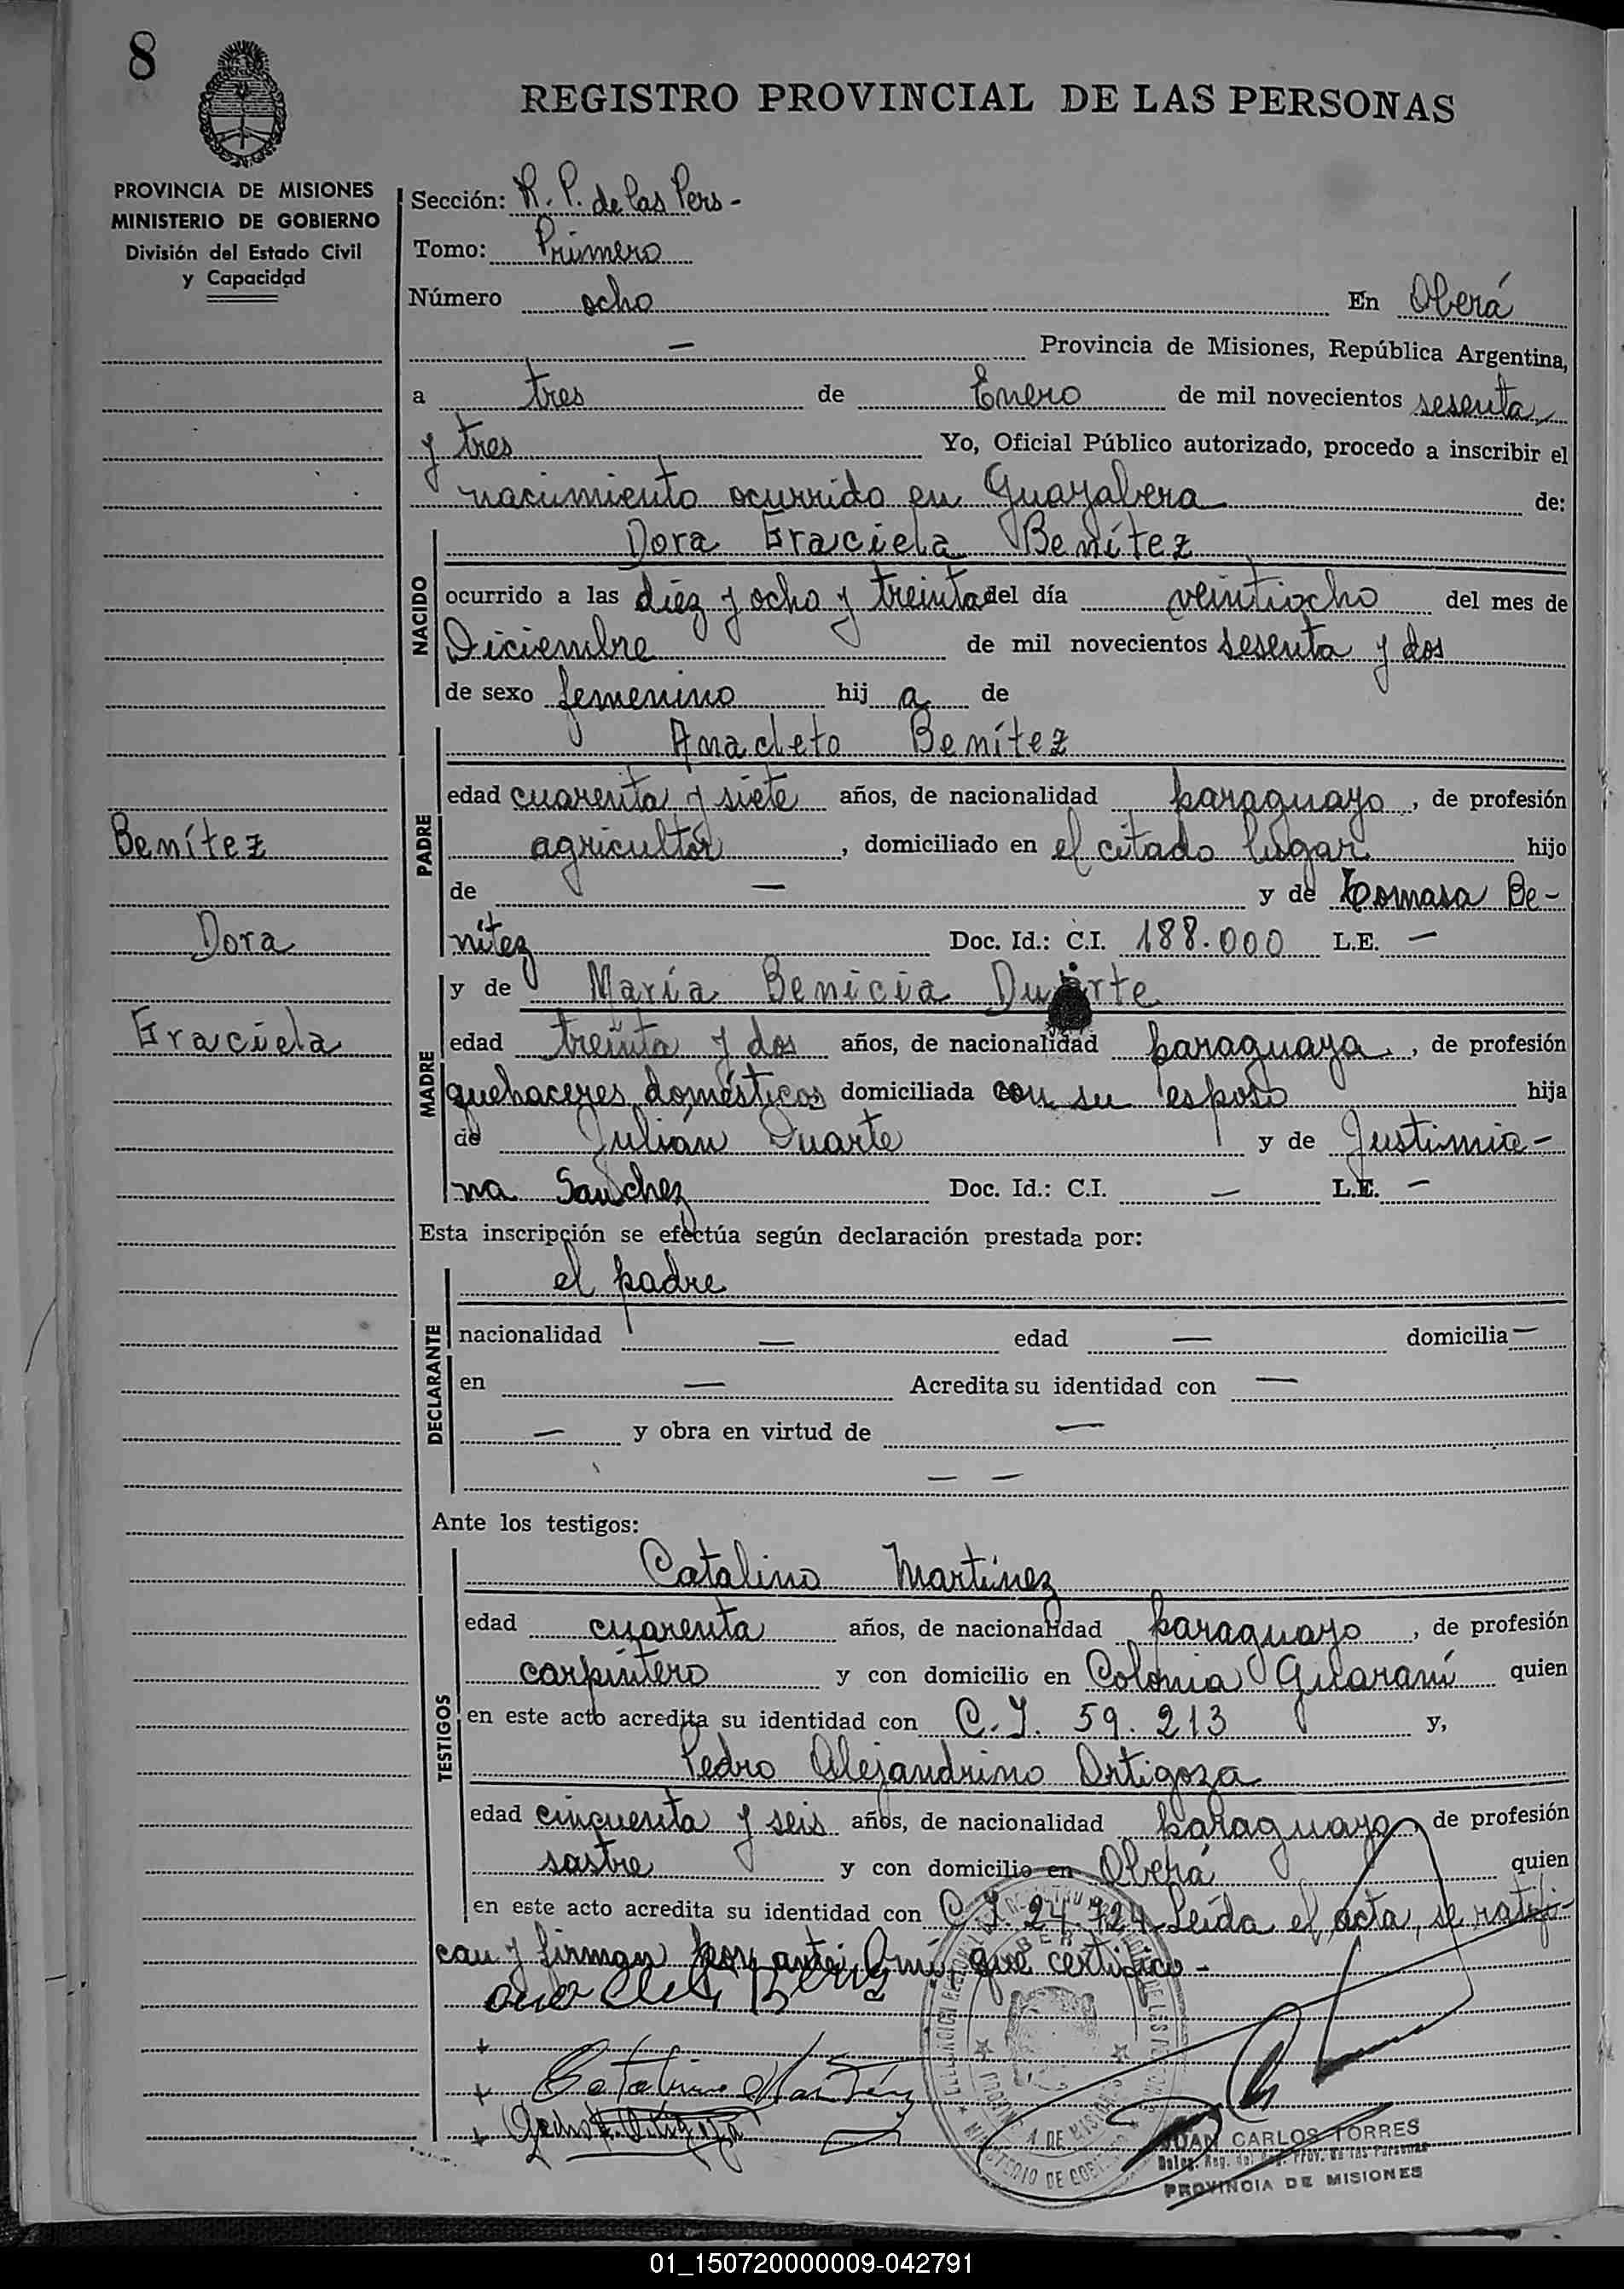 8
REGISTRO PROVINCIAL DE LAS PERSONAS
PROVINCIA DE MISIONES
MINISTERIO DE GOBIERNO
División del Estado Civil
y Capacidad
Sección: R. P. de las Pers -
Tomo: Primero
Número ocho En Oberá
— Provincia de Misiones, República Argentina,
a tres de Enero de mil novecientos sesenta
y tres Yo, Oficial Público autorizado, procedo a inscribir el
nacimiento ocurrido en Guayabera de:
NACIDO
Dora Graciela Benítez
ocurrido a las diez y ocho y treinta del día veintiocho del mes de
Diciembre de mil novecientos sesenta y dos
de sexo femenino hij a de
PADRE
Anacleto Benítez
edad cuarenta y siete años, de nacionalidad paraguayo, de profesión
agricultor, domiciliado en el citado lugar hijo
de — y de Tomasa Be-
nítez Doc. Id.: C.I. 188.000 L.E. —
Benítez
Dora
Graciela
MADRE
y de María Benicia Duarte
edad treinta y dos años, de nacionalidad paraguaya, de profesión
quehaceres domésticos domiciliada con su esposo hija
de Julián Duarte y de Justinia-
na Sanchez Doc. Id.: C.I. — L.E. —
Esta inscripción se efectúa según declaración prestada por:
DECLARANTE
el padre
nacionalidad — edad — domicilia —
en — Acredita su identidad con —
— y obra en virtud de —
— —
Ante los testigos:
TESTIGOS
Catalino Martínez
edad cuarenta años, de nacionalidad paraguayo, de profesión
carpintero y con domicilio en Colonia Guaraní quien
en este acto acredita su identidad con C. I. 59.213 y,
Pedro Alejandrino Ortigoza
edad cincuenta y seis años, de nacionalidad paraguayo, de profesión
sastre y con domicilio en Oberá quien
en este acto acredita su identidad con C. I. 24.724 Leída el acta, se ratifi-
can y firman por ante mí, que certifico -
Catalino Martínez
JUAN CARLOS TORRES
PROVINCIA DE MISIONES
01_150720000009-042791